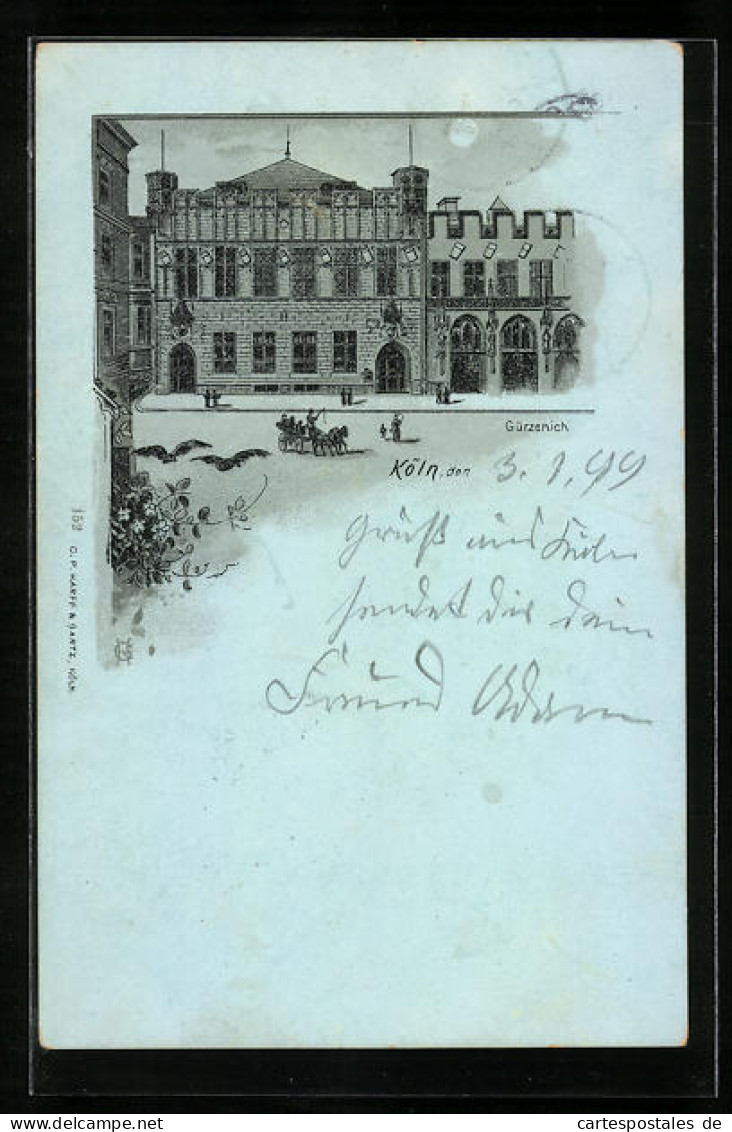 Gürzenich
Köln, den 3.1.99
Gruß aus Köln
sendet dir dein
Freund Adam
152 C. P. HARFF & GANTZ, KÖLN
cartespostales de